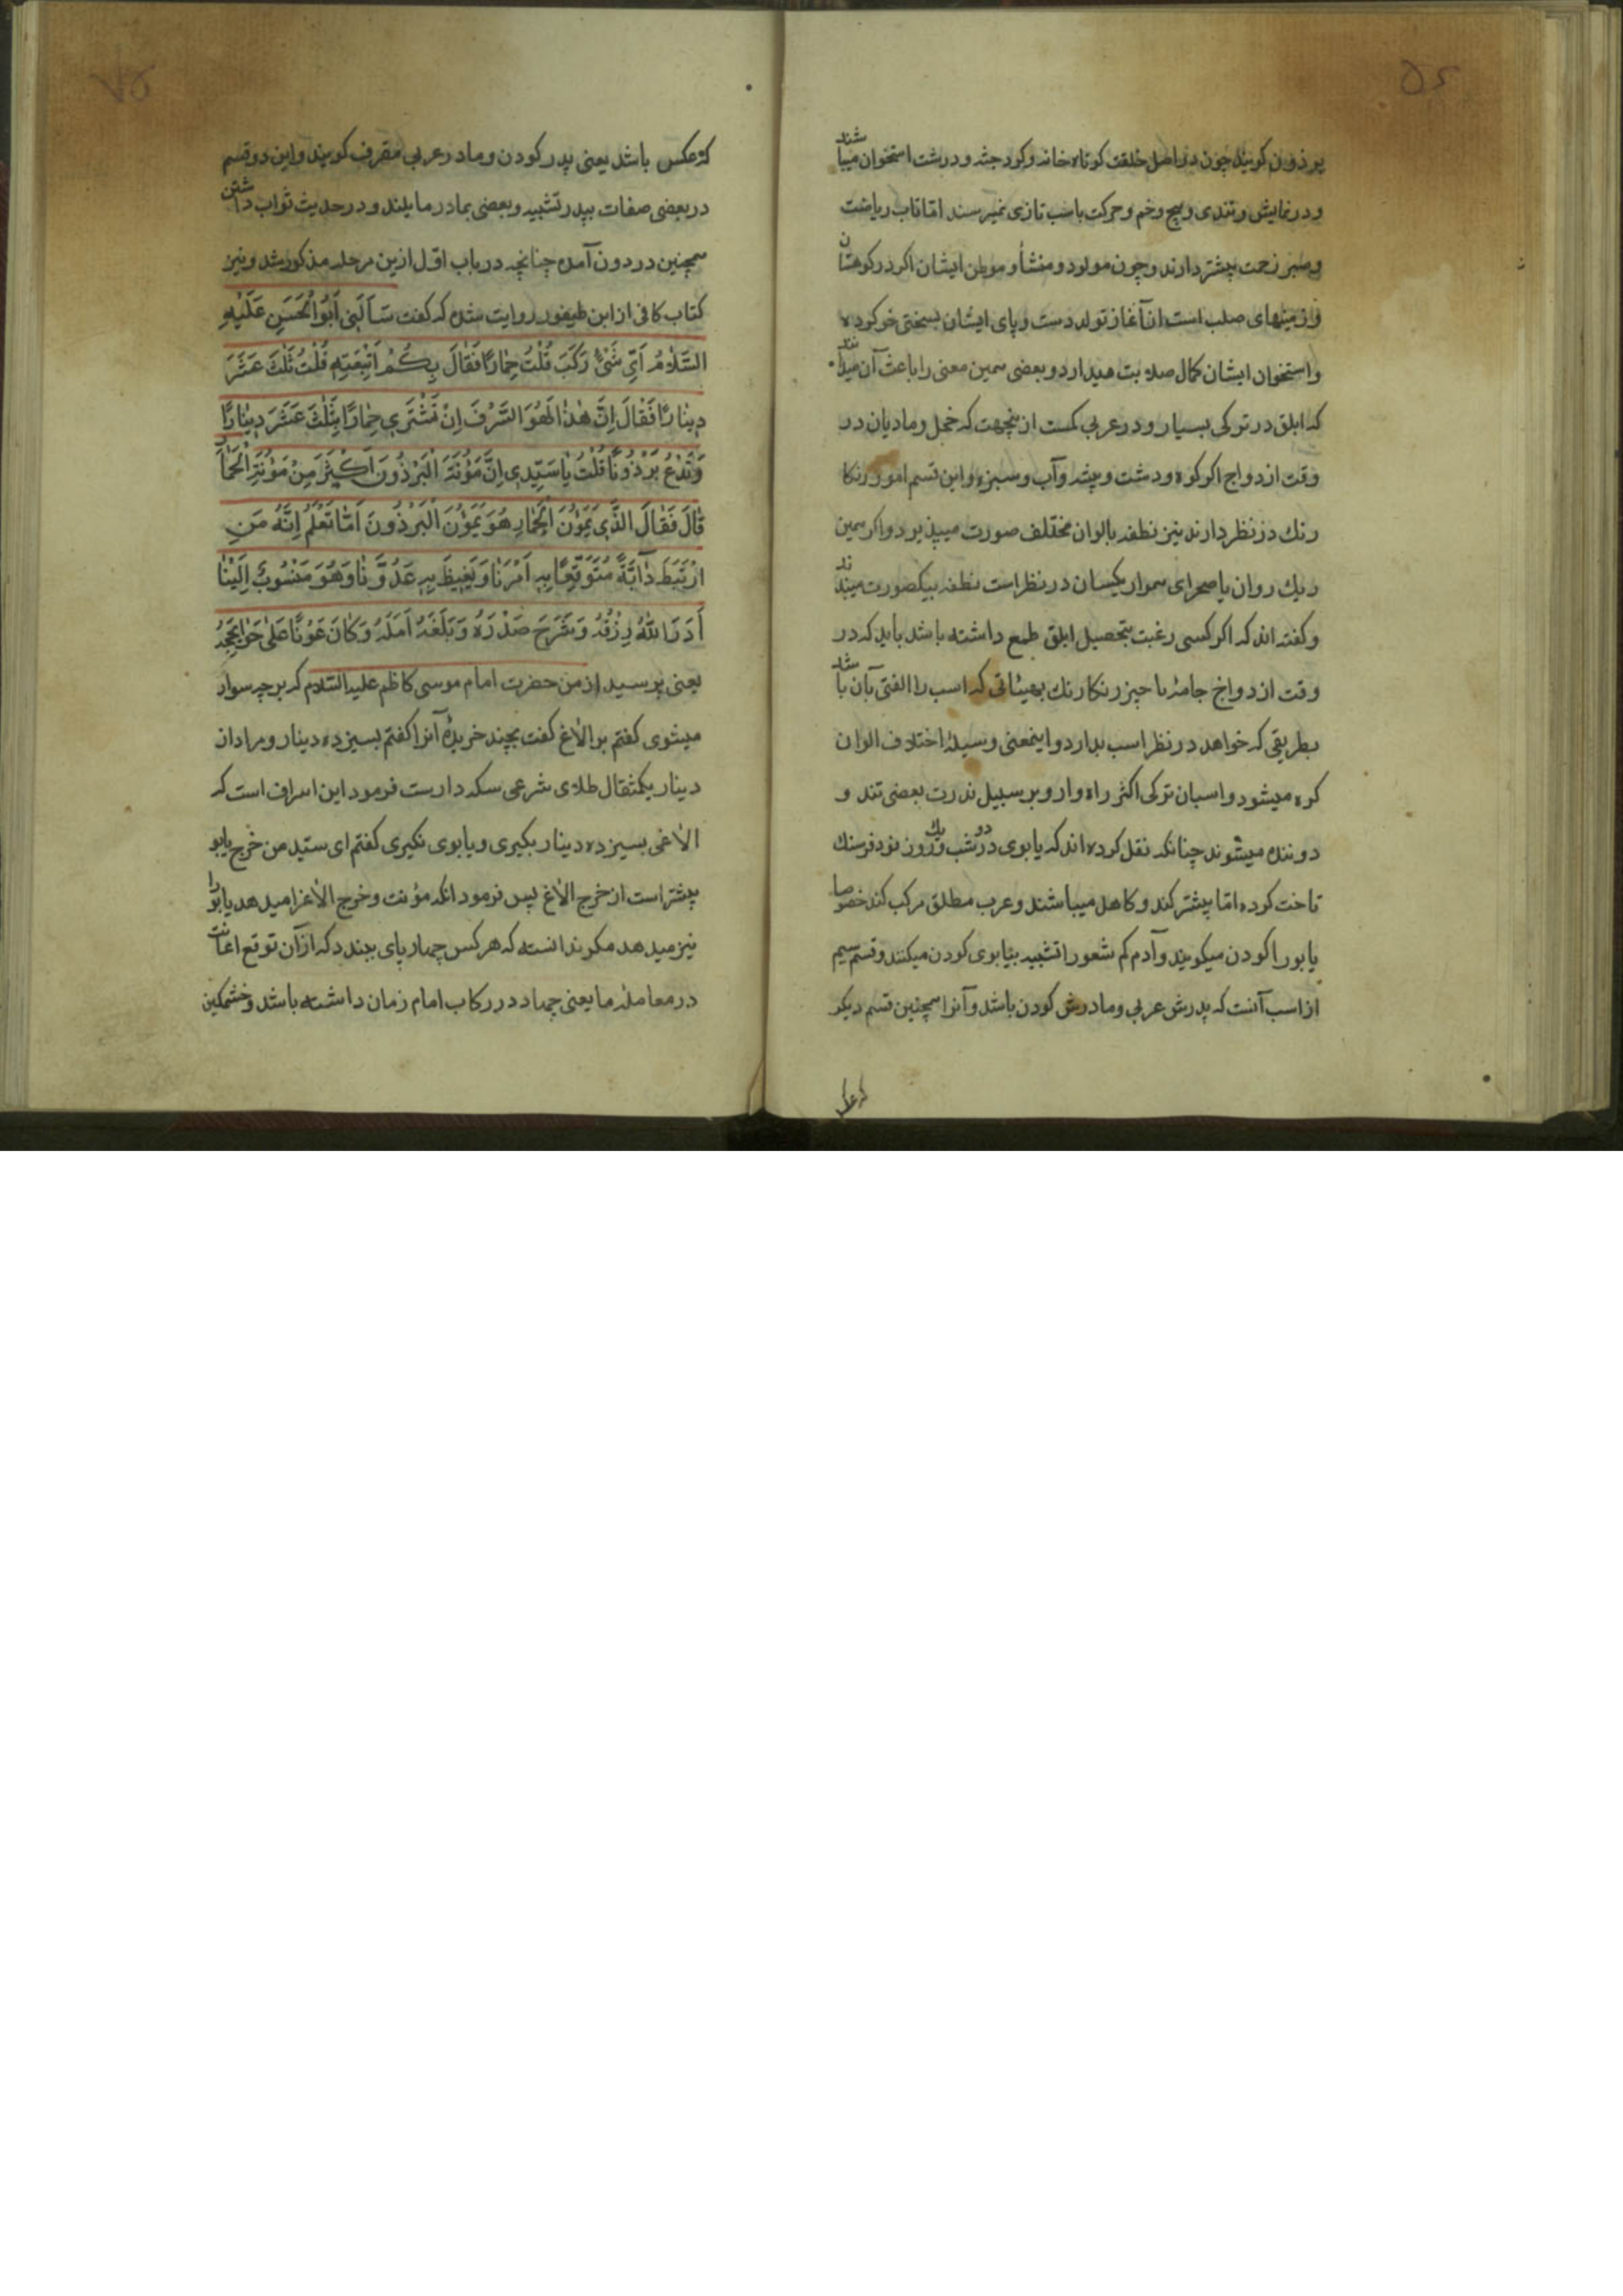 برذون کویند چون در اصل خلقت کوتاه خانه و کرد جثه و درشت استخوان میباشند
و در نمایش و تندی و پیچ و خم و حرکت باسب تازی نمیرسند امّا تاب ریاضت
و صبر زحمت بیشتر دارند و چون مولود و منشأ و موطن ایشان اکثر در کوهستان
و زمینهای صلب است از آغاز تولد دست و پای ایشان بسختی خو کرده
و استخوان ایشان کمال صلابت میدارد و بعضی همین معنی را باعث آن میدانند
که ابلق در ترکی بسیار و در عربی کمست ازینجهت که فحل و مادیان در
وقت ازدواج اکر کوه و دشت و بیشه و آب و سبزه و این قسم امور رنکا
رنك در نظر دارند نیز نطفه بالوان مختلف صورت میپذیرد و اکر همین
ریك روان یا صحرای هموار یکسان در نظر است نطفه بیکصورت میبندد
و کفته اند که اکر کسی رغبت بتحصیل ابلق طمع داشته باشد باید که در
وقت ازدواج جامهٔ یا چیز رنکارنك بهیئاتی که اسب را الفتی بآن باشد
بطریقی که خواهد در نظر اسب بدارد و اینمعنی وسیلهٔ اختلاف الوان
کره میشود و اسبان ترکی اکثر راه وار و بر سبیل ندرت بعضی تند و
دونده میشوند چنانکه نقل کرده اند که یابوی در دو شب و یك روز نود فرسنك
تاخت کرده امّا بیشتر کند و کاهل میباشند و عرب مطلق مرکب کند خصوصا
یابو را کودن میکویند و آدم کم شعور را تشبیه بیابوی کودن میکنند و قسم سیم
از اسب آنست که پدرش عربی و مادرش کودن باشد و آنرا همچنین قسم دیکر
که عکس
که عکس باشد یعنی پدر کودن و مادر عربی مقرف کویند و این دو قسم
در بعضی صفات بپدر تشبیه و بعضی بمادر مایلند و در حدیث ثواب داشتن
همچنین در دون آمده چنانچه در باب اوّل ازین مرحله مذکور شد و نیز
کتاب کافی از ابن طیفور روایت شده که کفت سَأَلَنِی أَبُو الْحَسَنِ عَلَیْهِ
السَّلَامُ أَیَّ شَیْءٍ رَکَبَ قُلْتُ حِمَارًا فَقَالَ بِکُمْ اَتْبَعْتِهِ قُلْتُ ثَلٰثَ عَشَرَ
دِینَارًا فَقَالَ اِنَّ هٰذَا لَهُوَ السَّرْفَ اِنْ تَشْتَرِی حِمَارًا بِثَلٰثَ عَشَرَ دِینَارًا
وَتَدَعُ بَرْذُونًا قُلْتُ یَا سَیِّدِی اِنَّ مَؤُنَةَ الْبَرْذُونَ اَکْثَرَ مِنْ مَؤُنَةِ الْحِمَارِ
قَالَ فَقَالَ الَّذِی یَمُوْنَ الْحِمَارِ هُوَ یَمُوْنَ الْبَرْذُونَ اَمَا تَعْلَمُ اِنَّهُ مَنِ
ارْتَبَطَ دَابَّةً مُتَوَقِّعًا بِهِ اَمْرَنَا وَیَغِیظَ بِهِ عَدُوَّنَا وَهُوَ مَنْسُوبٌ اِلَیْنَا
أَدَرَ اللّٰهُ رِزْقَهُ وَشَرَحَ صَدْرَهُ وَبَلَغَهُ اَمَلَهُ وَکَانَ عَوْنًا عَلٰی حَوَایِجِهِ
یعنی پرسید از من حضرت امام موسی کاظم علیه السّلام که بر چه سوار
میشوی کفتم بر الاغ کفت بچند خریدهٔ آنرا کفتم بسیزده دینار و مراد از
دینار یکمثقال طلای شرعی سکه دار است فرمود این اسراف است که
الاغی بسیزده دینار بکیری و یابوی نکیری کفتم ای سیّد من خرج یابو
بیشتر است از خرج الاغ پس فرمود انکه مؤنت و خرج الاغ را میدهد یابو را
نیز میدهد مکر ندانسته که هر کس چهار پای ببندد که از آن توقع اعانت
در معامله ما یعنی جهاد در رکاب امام زمان داشته باشد و خشمکین